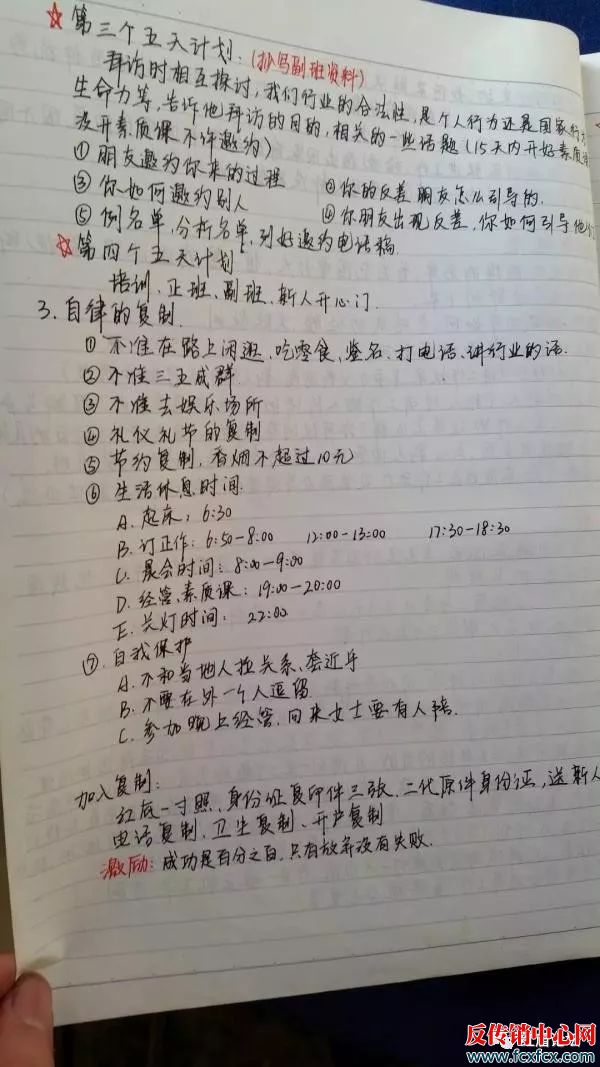 ☆第三个五天计划：(抄写副班资料)
拜访时相互探讨，我们行业的合法性，是个人行为还是国家行为
生命力等，告诉他拜访的目的，相关的一些话题（15天内开好素质课
没开素质课不许邀约）
①朋友邀约你来的过程 ②你的反差朋友怎么引导的.
③你如何邀约别人 ④你朋友出现反差，你如何引导他们
⑤例名单，分析名单，列好邀约电话稿
☆第四个五天计划
培训、正班、副班、新人开心门.
3.自律的复制.
①不准在路上闲逛、吃零食、签名、打电话、讲行业的话.
②不准三五成群
③不准去娱乐场所
④礼仪礼节的复制
⑤节约复制，香烟不超过10元）
⑥生活休息时间.
A.起床：6:30
B.订正作：6:50-8:00 12:00-13:00 17:30-18:30
C.晨会时间：8:00-9:00
D.经营、素质课：19:00-20:00
E.关灯时间：22:00
⑦.自我保护
A.不和当地人拉关系、套近乎
B.不要在外一个人逗留
C.参加晚上经营，回来女士要有人陪.
加入复制：
红底一寸照，身份证复印件三张，二代原件身份证，送新人
电话复制、卫生复制、开户复制
激励：成功是百分之百，只有放弃没有失败.
反传销中心网
www.fcxfcx.com